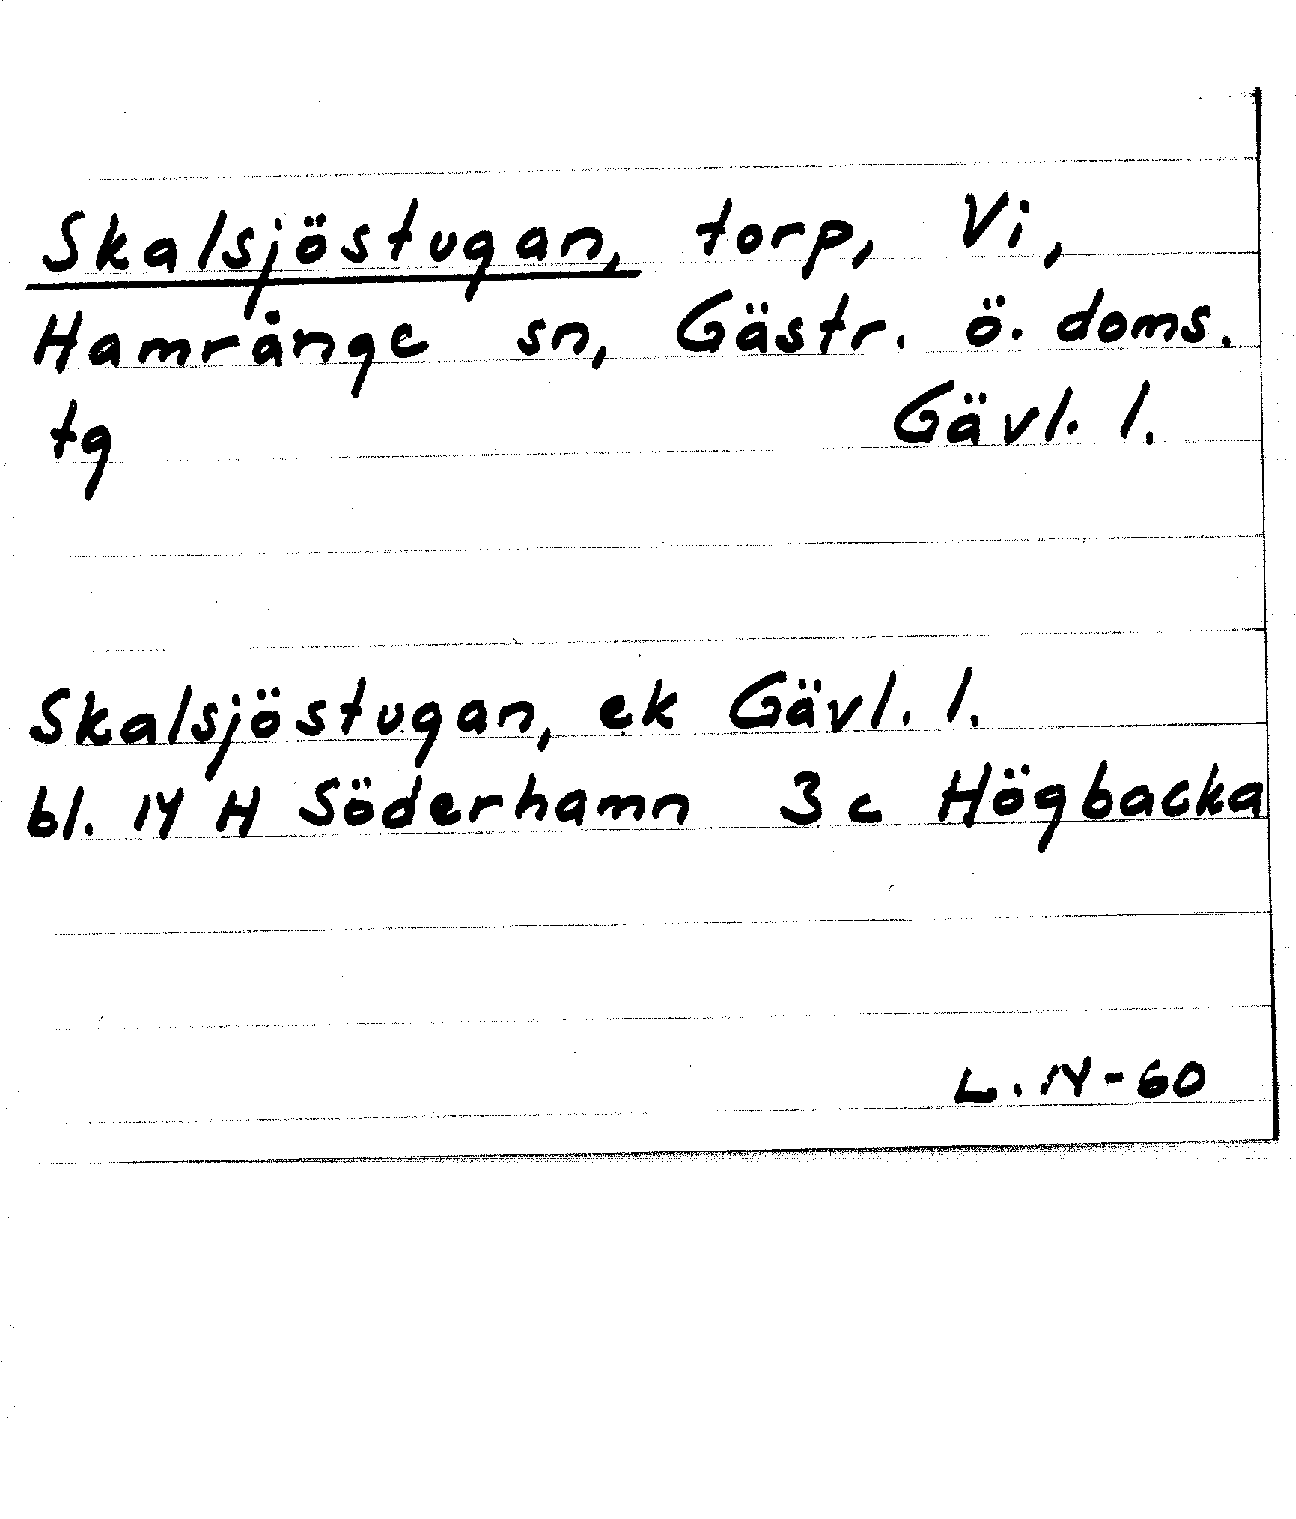 Skalsjöstugan, torp, Vi,
Hamrånge sn, Gästr. ö. doms.
tg Gävl. l.
Skalsjöstugan, ek Gävl. l.
bl. 14 H Söderhamn 3 c Högbacka
L. 14-60